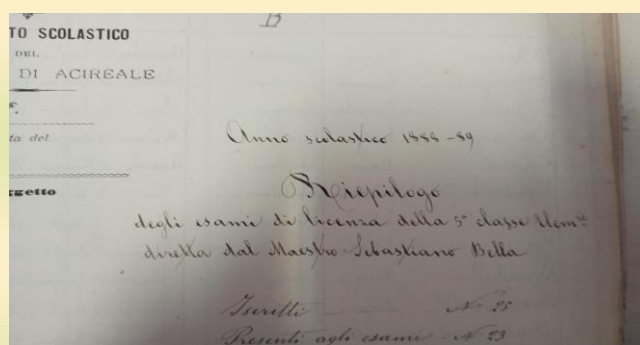 B
TO SCOLASTICO
DEL
DI ACIREALE
ta del
ggetto
Anno scolastico 1888-89
Riepilogo
degli esami di licenza della 5ª classe Elemre
diretta dal Maestro Sebastiano Bella
Iscritti N° 25
Presenti agli esami N 23